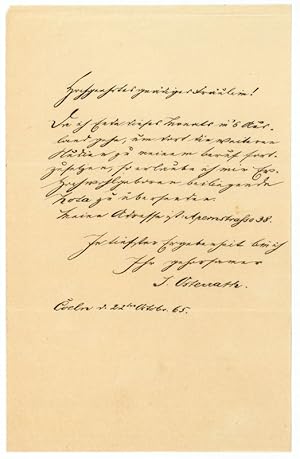 Hochgeehrtes gnädiges Fräulein!
Da ich Ende dieses Monats in's Aus-
land gehe, um dort die weiteren
Studien zu meinem Beruf fort-
zusetzen, so erlaube ich mir Ew.
Hochwohlgeboren beiliegende
Nota zu übersenden.
Meine Adresse ist: Apernstraße 38.
In tiefster Ergebenheit bin ich
Ihr gehorsamer
J. Osterrath
Coeln d. 22ten Octobr. 65.